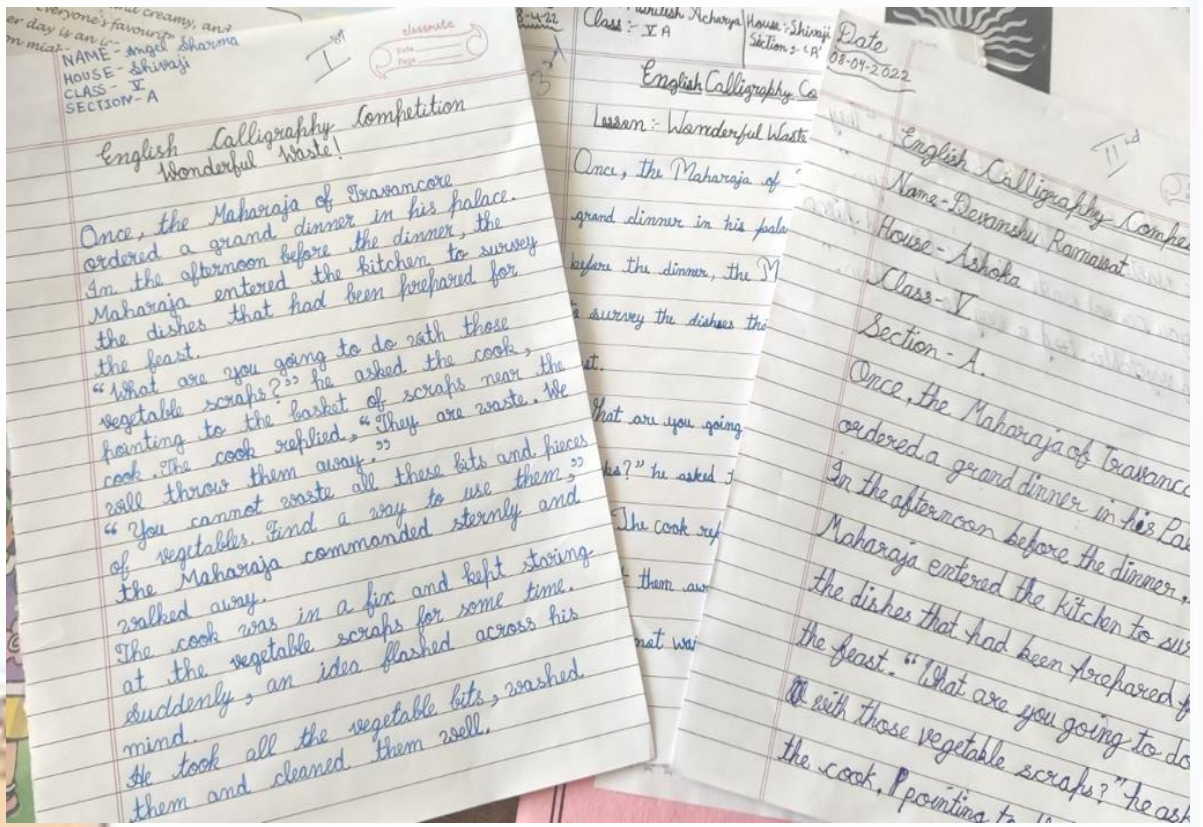 everyone's favourite
creamy, and
er day is an
NAME- Angel Sharma
HOUSE- Shivaji
CLASS- V
SECTION-A
Ist
classmate
Date
Page
English Calligraphy Competition
Wonderful Waste!
Once, the Maharaja of Travancore
ordered a grand dinner in his palace.
In the afternoon before the dinner, the
Maharaja entered the kitchen to survey
the dishes that had been prepared for
the feast.
“What are you going to do with those
vegetable scraps?” he asked the cook,
pointing to the basket of scraps near the
cook. The cook replied, “They are waste. We
will throw them away.”
“You cannot waste all these bits and pieces
of vegetables. Find a way to use them,”
the Maharaja commanded sternly and
walked away.
The cook was in a fix and kept staring
at the vegetable scraps for some time.
Suddenly, an idea flashed across his
mind.
He took all the vegetable bits, washed
them and cleaned them well.
8-4-22
Acharya
House:-Shivaji
Class:- V A
Section:-'A'
3rd
English Calligraphy Co
Lesson:- Wonderful Waste
Once, the Maharaja of
grand dinner in his pala
before the dinner, the M
survey the dishes tha
st.
hat are you going
ks?” he asked
The cook rep
them awa
not wa
Date
08-04-2022
IInd
English Calligraphy Compe
Name-Devanshu Ramawat
House-Ashoka
Class-V
Section-A.
Once, the Maharaja of Travanco
ordered a grand dinner in his Pal
In the afternoon before the dinner,
Maharaja entered the kitchen to sur
the dishes that had been prepared f
the feast. “What are you going to do
with those vegetable scraps?” he ask
the cook, pointing to